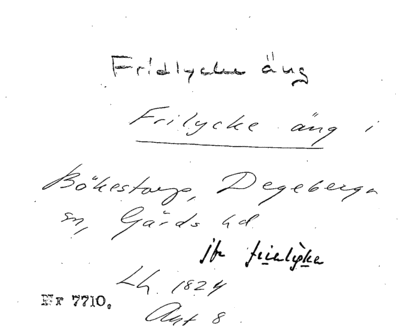 Fridlycke äng
Frilycke äng i
Bökestorp, Degeberga
sn, Gärds hd
jfr
Lh. 1824
Akt 8
Nr 7710.